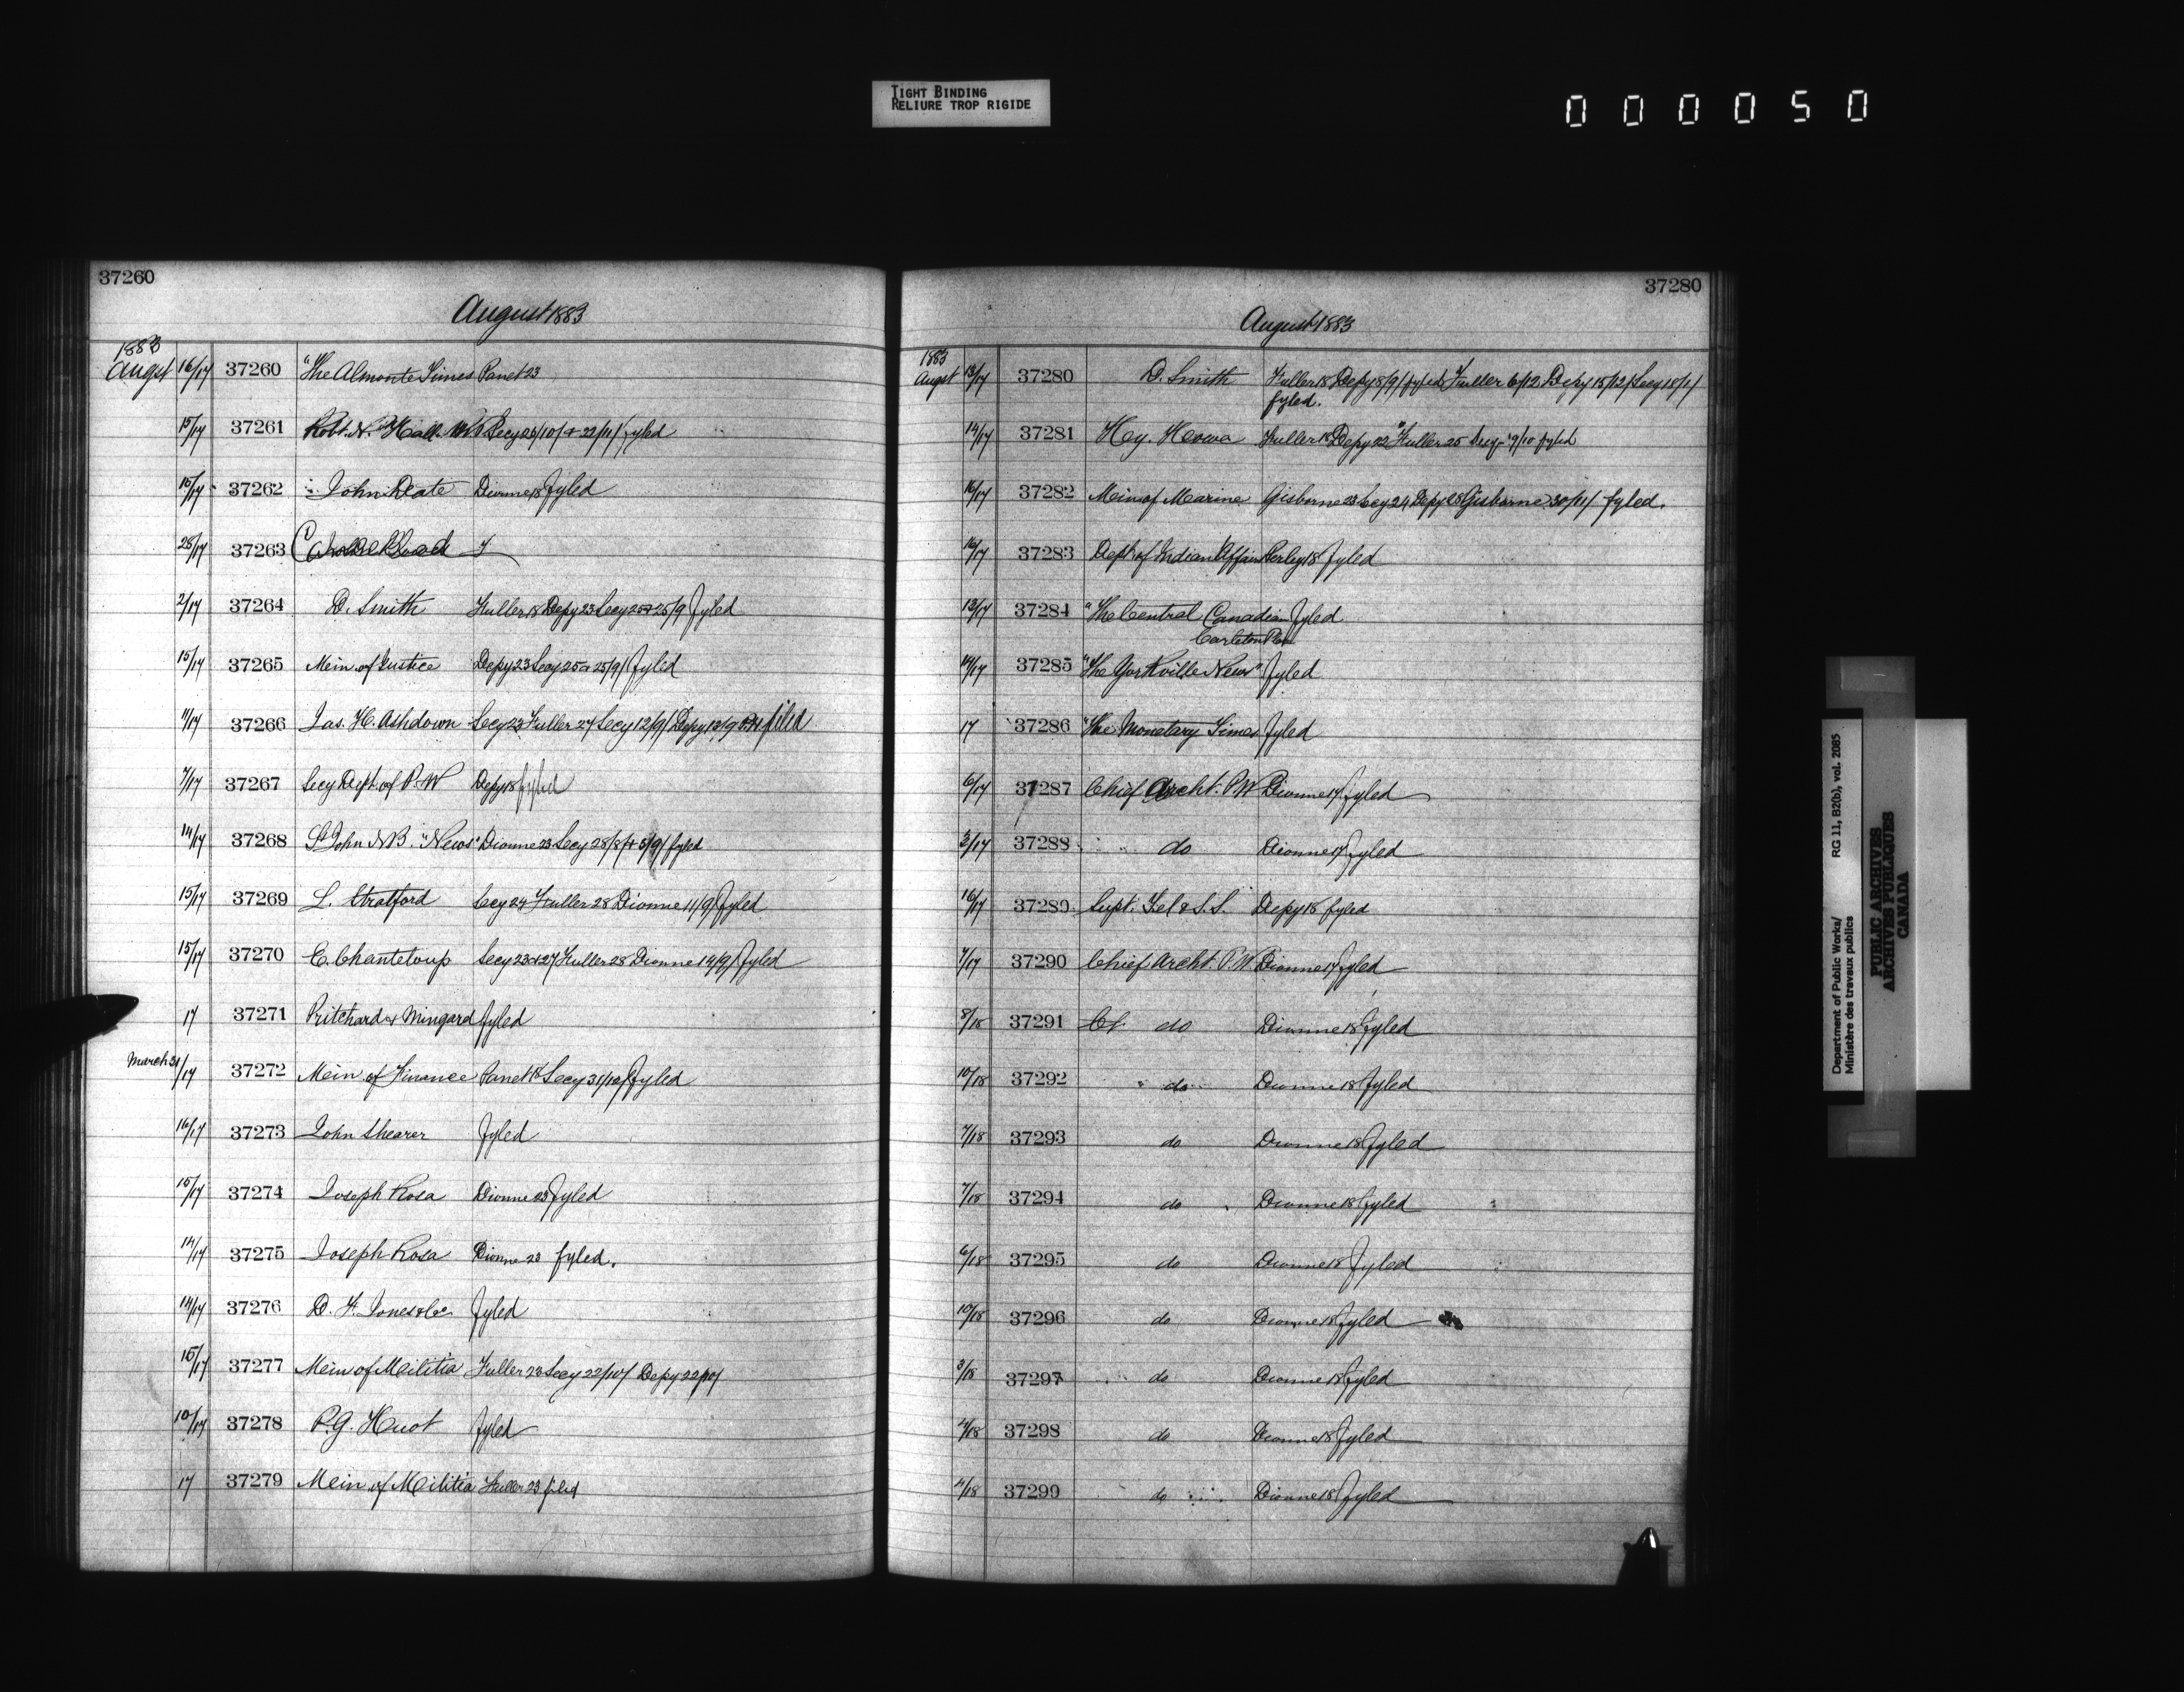 TIGHT BINDING
RELIURE TROP RIGIDE
000050
37260
August 1883
1883
Augst 16/17 37260 "The Almonte Times Panet 23
15/17 37261 Robt. N. Hall Secy 23/10/ + 22/11/ fyled
15/17 37262 John Deate Dionne 18 fyled
28/17 37263
2/17 37264 D. Smith Fuller 18 Depy 23 Secy 25 + 25/9 fyled
15/17 37265 Mein. of Justice Depy 23 Secy 25 + 25/9/ fyled
11/17 37266 Jas. H. Ashdown Secy 23 Fuller 27 Secy 12/9/ Depy 13/9 filed
7/17 37267 Secy Dept. of P.W Depy 18 fyled
14/17 37268 St John N.B. "News" Dionne 23 Secy 28/8/ + 5/9/ fyled
15/17 37269 L. Stratford Secy 24 Fuller 28 Dionne 11/9/ fyled
15/17 37270 E. Chanteloup Secy 23 + 27 Fuller 28 Dionne 14/9/ fyled
17 37271 Pritchard & Mingard fyled
March 31/17 37272 Mein. of Finance Panet 18 Secy 31/12/ fyled
16/17 37273 John Shearer fyled
15/17 37274 Joseph Rosa Dionne 23 fyled
14/17 37275 Joseph Rosa Dionne 23 fyled.
14/17 37276 D. F. Jones & Co. fyled
15/17 37277 Mein of Meilitia Fuller 23 Secy 22/10/ Depy 22/10/
10/17 37278 P.G. Huot fyled
17 37279 Mein. of Meilitia Fuller 23 filed
37280
August 1883
1883
Augst 13/17 37280 D. Smith Fuller 18 Depy 8/9/ fyled Fuller 6/12 Depy 15/12/ Secy 18/1/
fyled.
14/17 37281 Hy. Fuller 18 Depy 22 Fuller 25 Secy 9/10 fyled
16/17 37282 Mein of Marine Gisborne 23 Secy 24 Depy 28 Gisborne 30/11/ fyled.
16/17 37283 Dept. of Indian Affairs Perley 18 fyled
13/17 37284 "The Central Canadian fyled
Carleton Place
14/17 37285 "The Yorkville News" fyled
17 37286 "The Monetary Times fyled
6/17 37287 Chief Archt. P.W Dionne 17 fyled
3/17 37288 do Dionne 17 fyled
16/17 37289 Supt. Tel & S.S. Depy 18 fyled
7/17 37290 Chief Archt. P.W. Dionne 17 fyled
8/18 37291 Cf. do Dionne 18 fyled
10/18 37292 " do Dionne 18 fyled
7/18 37293 do Dionne 18 fyled
7/18 37294 do Dionne 18 fyled
6/18 37295 do Dionne 18 fyled
10/18 37296 do Dionne 18 fyled
3/18 37297 do Dionne 18 fyled
4/18 37298 do Dionne 18 fyled
4/18 37299 do Dionne 18 fyled
Department of Public Works/ RG 11, B2(b), vol. 2085
Ministère des travaux publics
PUBLIC ARCHIVES
ARCHIVES PUBLIQUES
CANADA